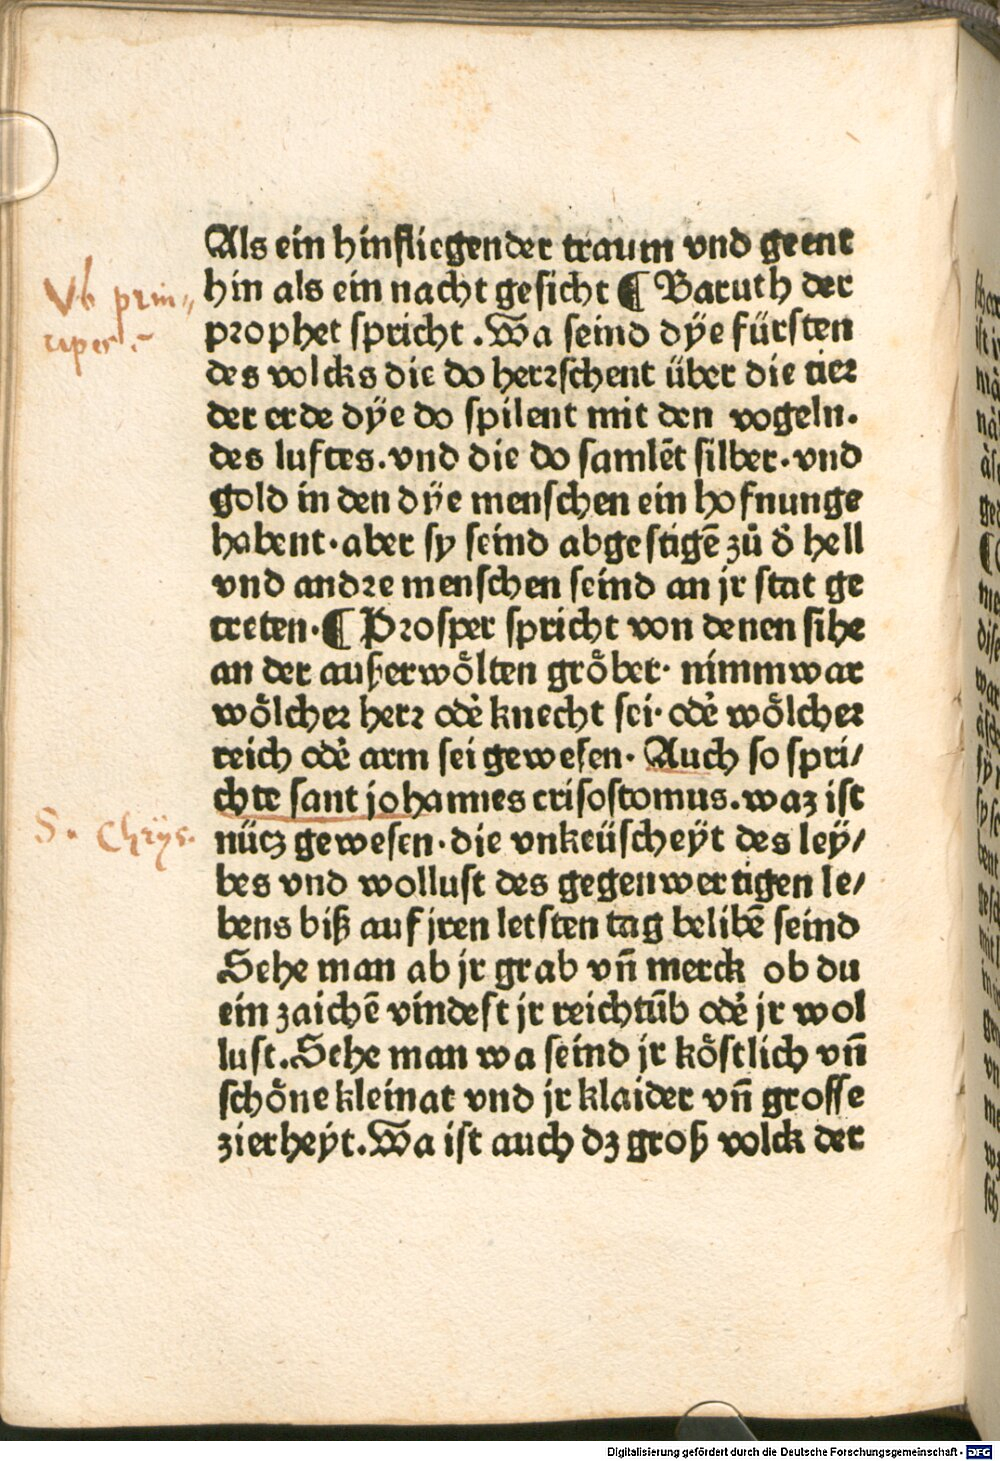 Als ein hinfliegender traum vnd geent
hin als ein nacht gesicht ¶ Baruth der
prophet spricht. Wa seind dÿe fürsten
des volcks die do herrschent über die tier
der erde dÿe do spilent mit den vogeln.
des luftes. vnd die do samlēt silber. vnd
gold in den dÿe menschen ein hofnunge
habent. aber sy seind abgestigē zů d̾ hell
vnd andre menschen seind an jr stat ge
treten. ¶ Prosper spricht von denen sihe
an der außerwoͤlten groͤber. nimm war
woͤlcher herr od̾ knecht sei. od̾ woͤlcher
reich od̾ arm sei gewesen. Auch so spri/
chte sant johannes crisostomus. waz ist
nücz gewesen. die vnkeüscheÿt des leÿ/
bes vnd wollust des gegenwertigen le/
bens biß auf jren letsten tag belibē seind
Sehe man ab jr grab vñ merck ob du
ein zaichē vindest jr reichtūb od̾ jr wol
lust. Sehe man wa seind jr koͤstlich vñ
schoͤne kleinat vnd jr klaider vñ grosse
zierheÿt. Wa ist auch dz groß volck der
Vb prin„
cipes.
S. Chrÿs.
Digitalisierung gefördert durch die Deutsche Forschungsgemeinschaft - DFG